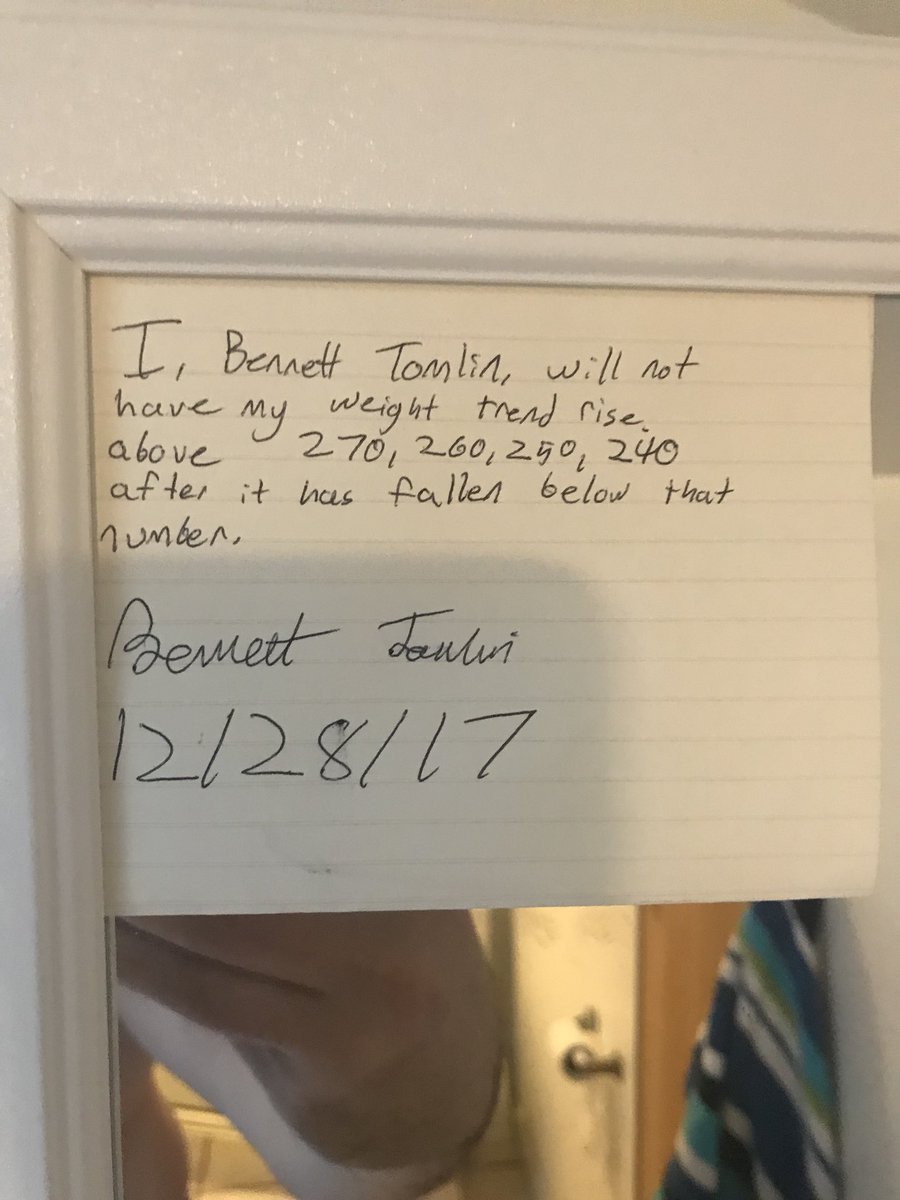 I, Bennett Tomlin, will not
have my weight trend rise
above 270, 260, 250, 240
after it has fallen below that
number.
Bennett Tomlin
12/28/17